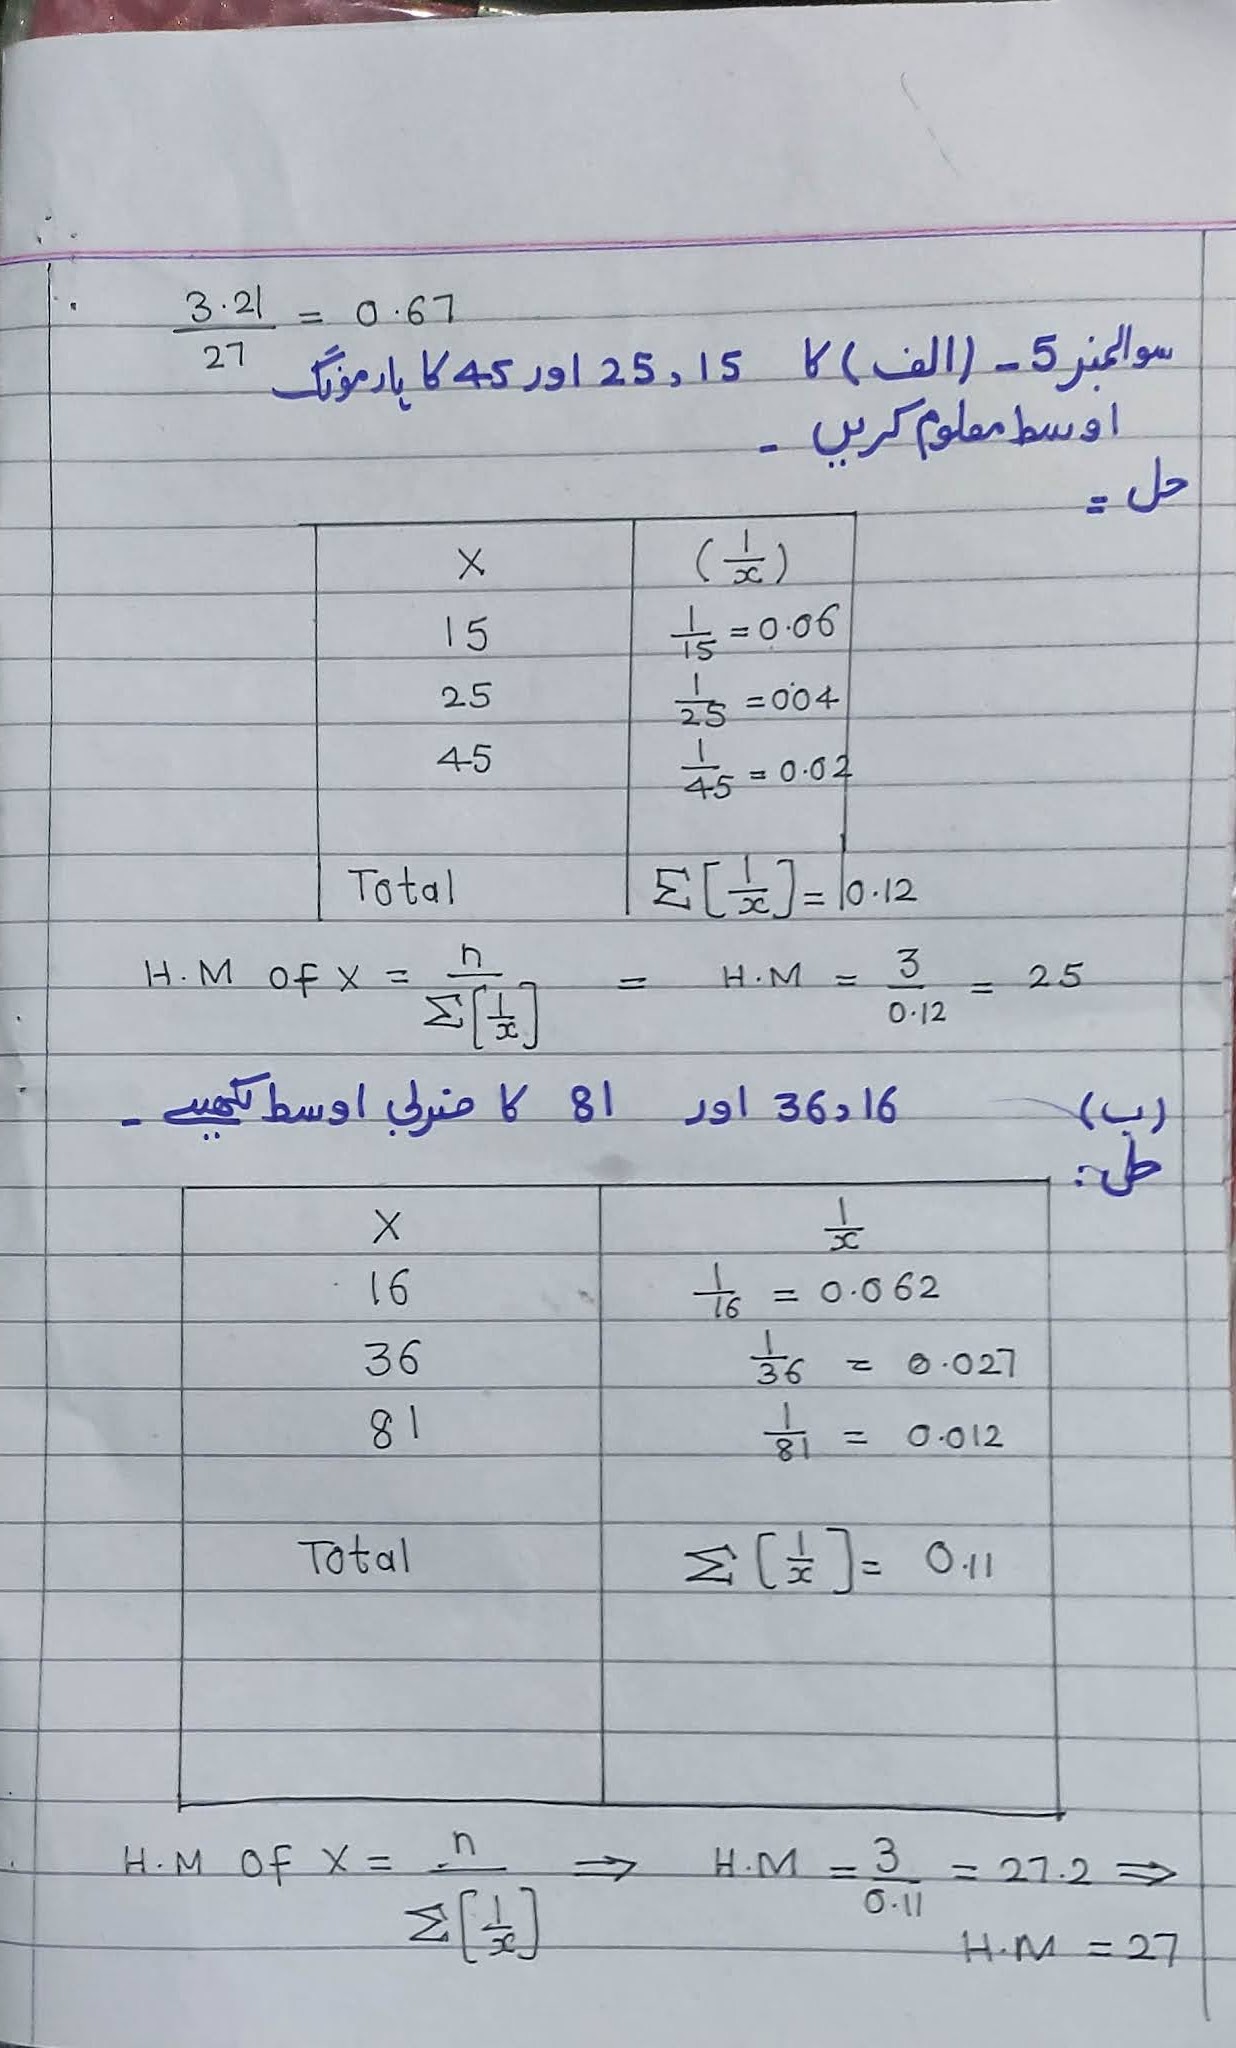 3.21/27 = 0.67
سوالنمبر 5 - (الف) کا 15، 25 اور 45 کا ہارمونگ
اوسط معلوم کریں -
حل =
X (1/x)
15 1/15 = 0.06
25 1/25 = 0.04
45 1/45 = 0.02
Total Σ[1/x] = 0.12
H.M of X = n/Σ[1/x] = H.M = 3/0.12 = 25
(ب) 16، 36 اور 81 کا ضربی اوسط لکھیے -
حل:
X 1/x
16 1/16 = 0.062
36 1/36 = 0.027
81 1/81 = 0.012
Total Σ[1/x] = 0.11
H.M of X = n/Σ[1/x] ⇒ H.M = 3/0.11 = 27.2 ⇒
H.M = 27